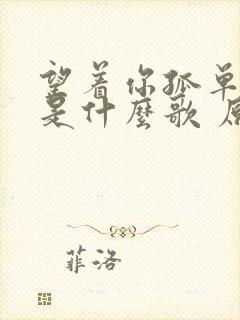 望着你孤单
是什麼歌 原
菲洛